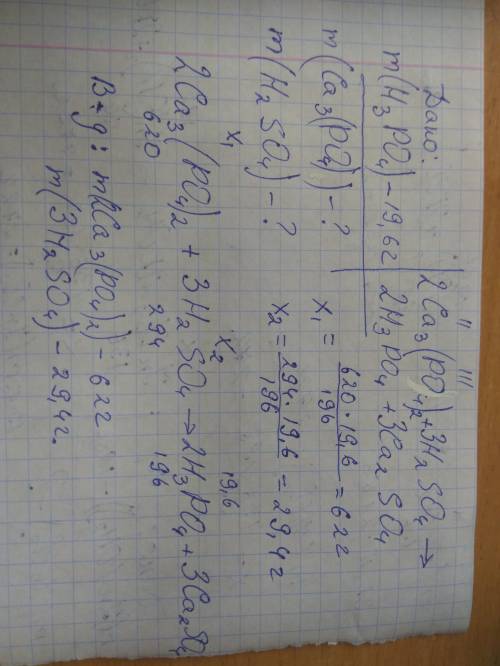 Дано:
m(H₃PO₄) - 19,6г
m(Ca₃(PO₄)) - ?
m(H₂SO₄) - ?
2Ca₃(PO₄)₂ + 3H₂SO₄ →
2H₃PO₄ + 3Ca₂SO₄
x₁ = 620·19,6/196 = 62г
x₂ = 294·19,6/196 = 29,4г
x₁ x₂ 19,6
2Ca₃(PO₄)₂ + 3H₂SO₄ → 2H₃PO₄ + 3Ca₂SO₄
620 294 196
В-дь: m(2Ca₃(PO₄)₂) - 62г
m(3H₂SO₄) - 29,4г.